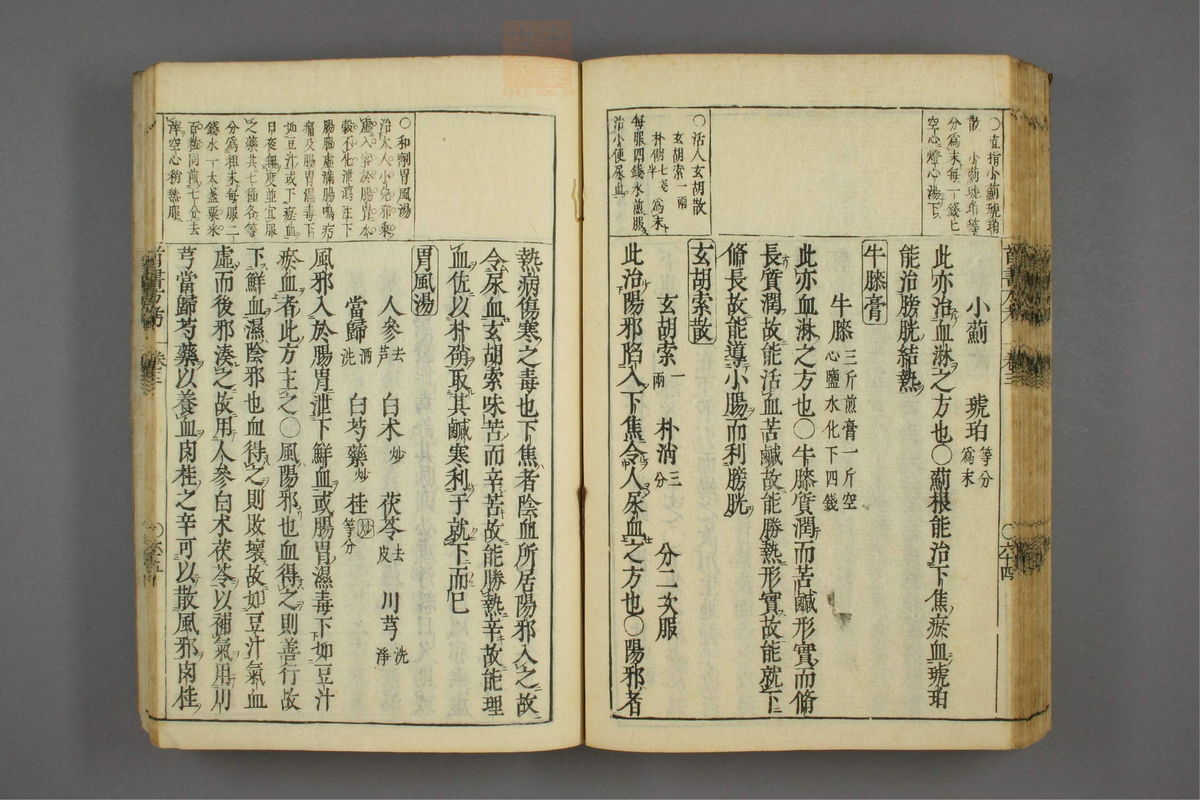 〇直指小薊琥珀
散 小薊琥珀等
分爲末每一錢七
空心燈心湯下
〇活人玄胡散
玄胡索一兩
朴硝七戔半 爲末
每服四錢水煎服
治小便尿血
小薊 琥珀等分爲末
此亦治血淋之方也〇薊根能治下焦瘀血琥珀
能治膀胱結熱
牛膝膏
牛膝三斤煎膏一斤空心鹽水化下四錢
此亦血淋之方也〇牛膝質潤而苦鹹形實而脩
長質潤故能活血苦鹹故能勝熱形實故能就下
脩長故能導小腸而利膀胱
玄胡索散
玄胡索一兩 朴硝三分 分二次服
此治陽邪陷入下焦令人尿血之方也〇陽邪者
卷三
〇六十四
〇和劑胃風湯
治大人小兒邪乘
虛入客於腸胃水
穀不化泄瀉注下
腸脇虛滿腸鳴㽲
痛及腸胃濕毒下
如豆汁或下瘀血
日夜無度並宜服
之藥共七種各等
分爲粗末每服二
錢水一大盞粟米
百餘同煎七分去
滓空心稍熱服
熱病傷寒之毒也下焦者陰血所居陽邪入之故
令尿血玄胡索味苦而辛苦故能勝熱辛故能理
血佐以朴硝取其鹹寒利于就下而已
胃風湯
人參去芦 白朮炒 茯苓去皮 川芎洗淨
當歸酒洗 白芍藥炒 桂炒等分
風邪入於腸胃泄下鮮血或腸胃濕毒下如豆汁
瘀血者此方主之〇風陽邪也血得之則善行故
下鮮血濕陰邪也血得之則敗壞故如豆汁氣血
虛而後邪湊之故用人參白朮茯苓以補氣用川
芎當歸芍藥以養血肉桂之辛可以散風邪肉桂
卷三